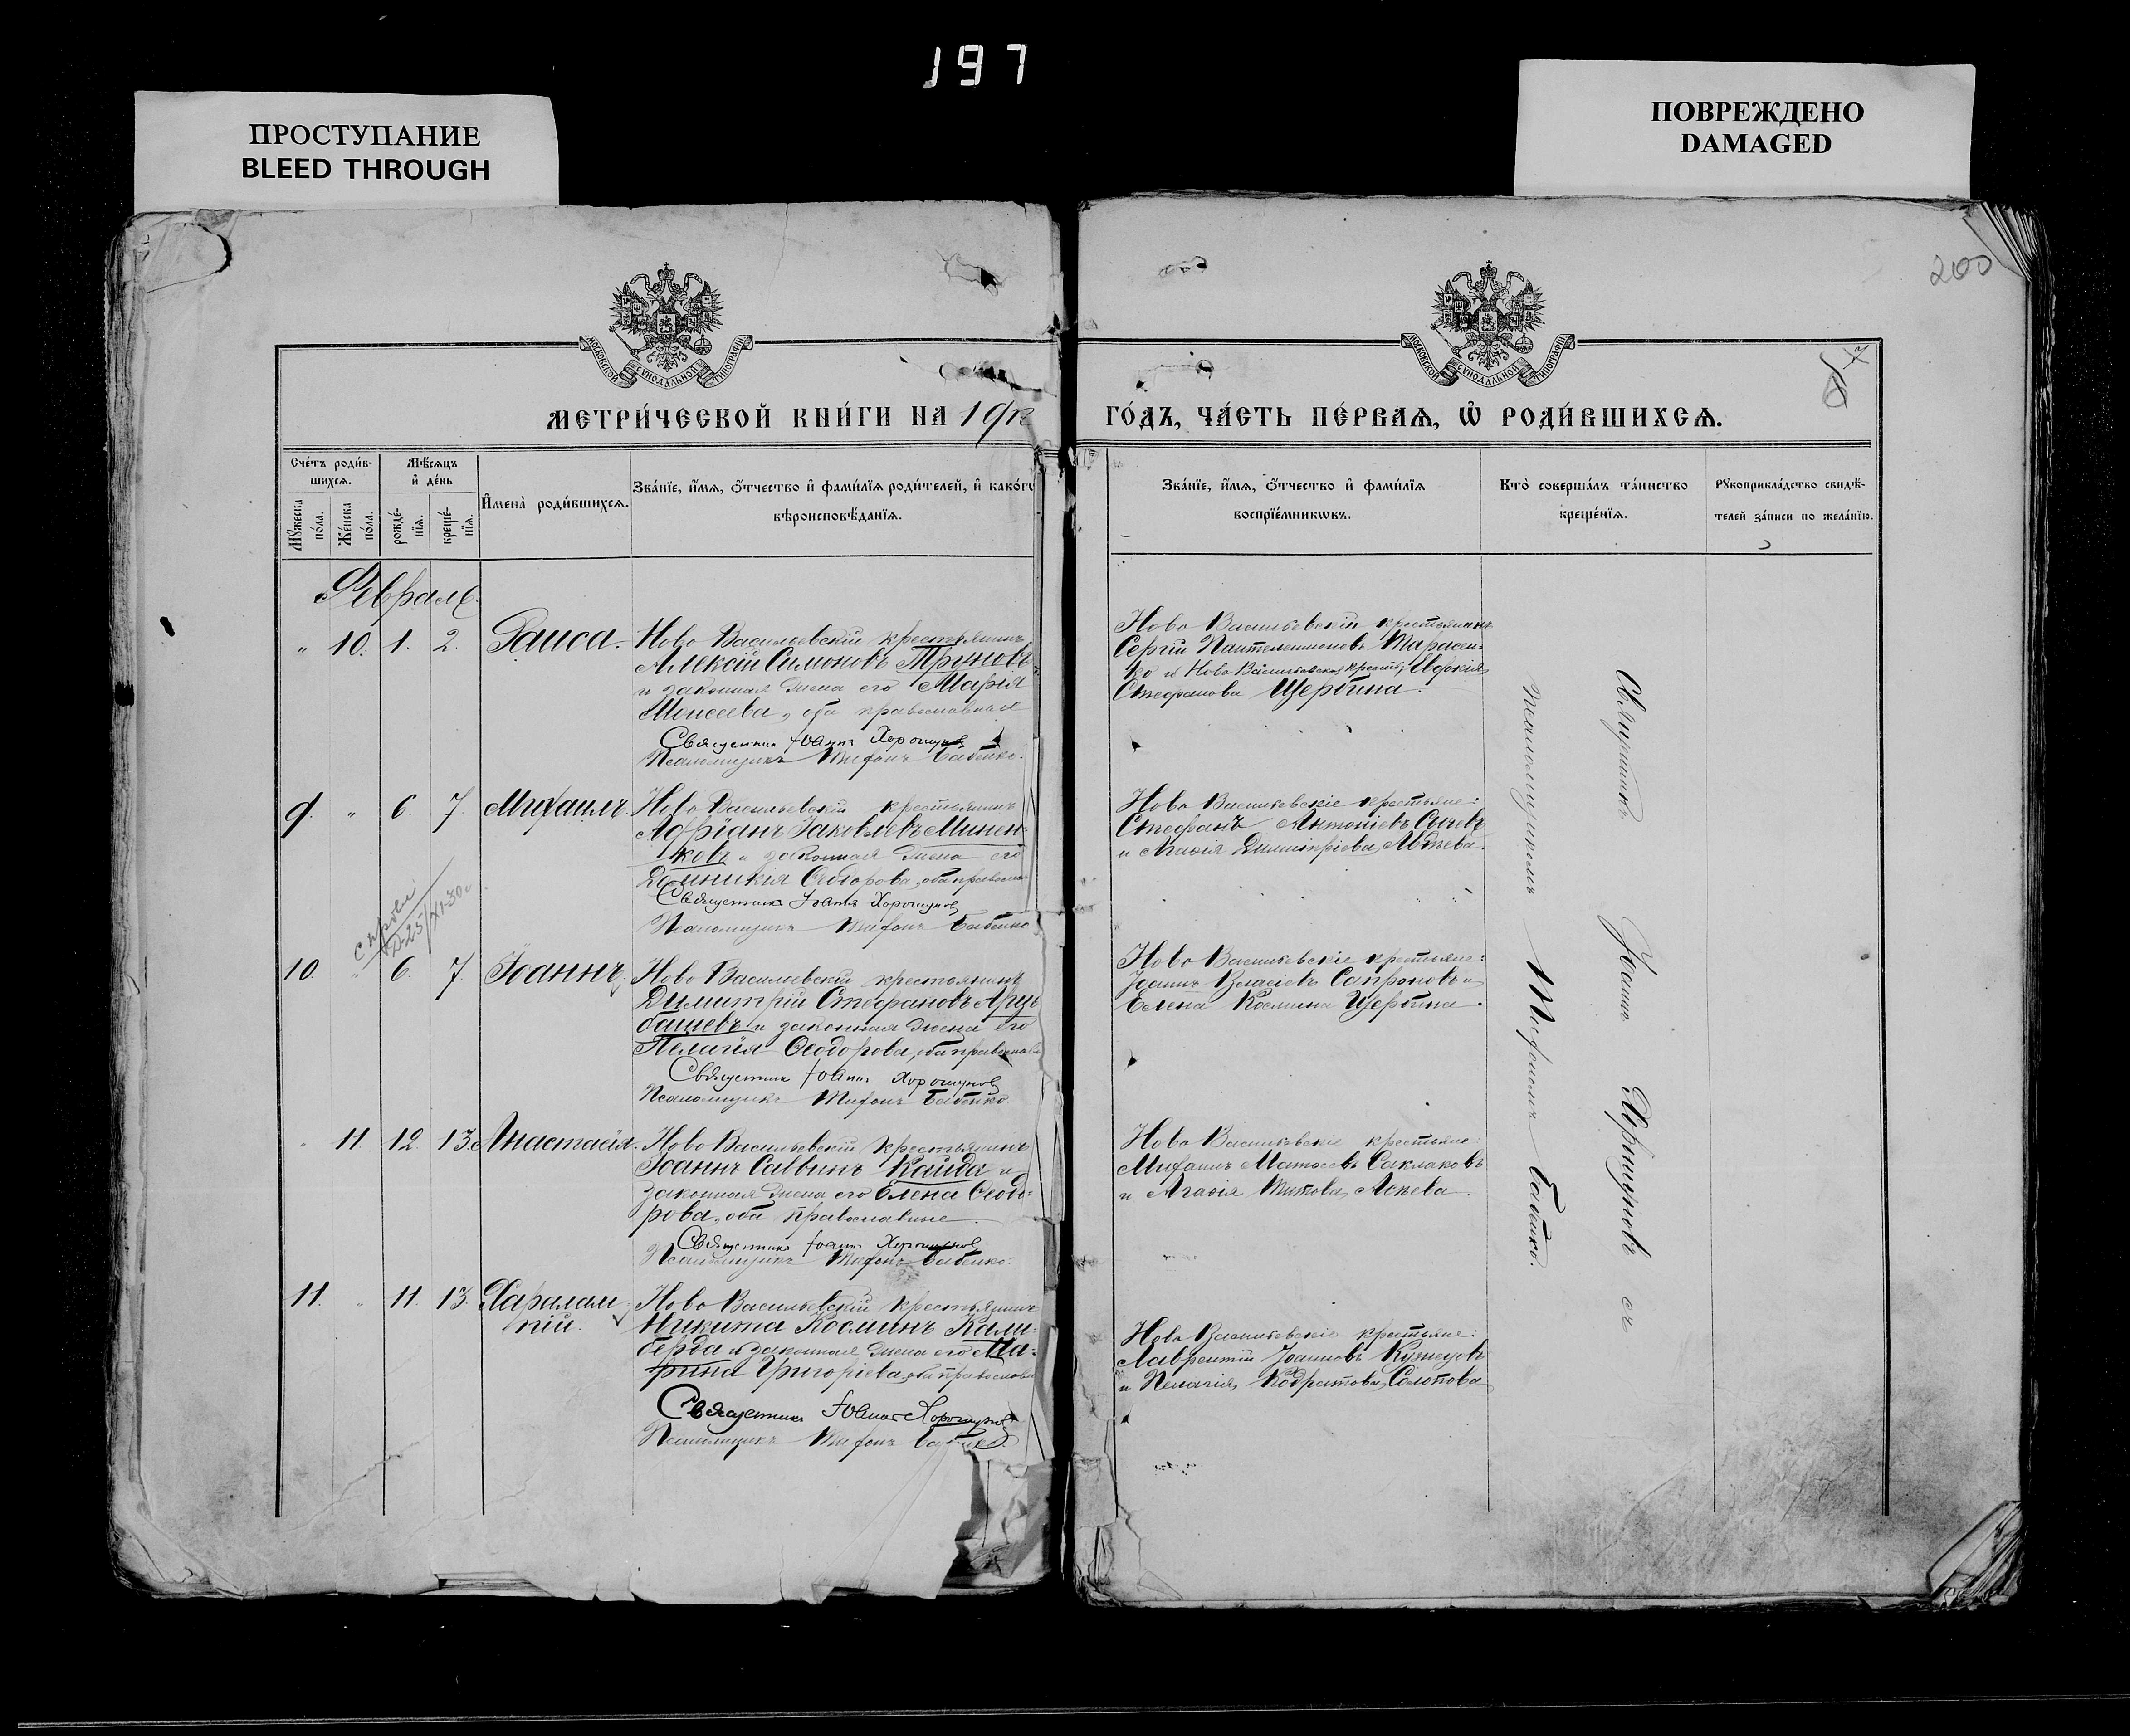 197
ПРОСТУПАНИЕ
BLEED THROUGH
ПОВРЕЖДЕНО
DAMAGED
200
МОСКОВСКОЙ СѴНОДАЛЬНОЙ ТИПОГРАФІИ
МОСКОВСКОЙ СѴНОДАЛЬНОЙ ТИПОГРАФІИ
МЕТРИ́ЧЕСКОЙ КНИ́ГИ НА 191
ГО́ДЪ, ЧА́СТЬ ПЕ́РВАѦ, Ѡ҆ РОДИ́ВШИХСѦ.
Сче́тъ роди́в-
шихсѧ.
Мꙋ́жеска
по́ла.
Же́нска
по́ла.
Мѣ́сѧцъ
и҆ де́нь
рожде́-
нїѧ.
креще́-
нїѧ.
И҆мена̀ роди́вшихсѧ.
Зва́нїе, и҆́мѧ, ѻ҆́тчество и҆ фами́лїѧ роди́телей, и҆ како́гѡ
вѣроисповѣ́данїѧ.
Зва́нїе, и҆́мѧ, ѻ҆́тчество и҆ фами́лїѧ
воспрїе́мникѡвъ.
Кто̀ соверша́лъ та́инство
креще́нїѧ.
Рꙋкоприкла́дство свидѣ́-
телей за́писи по жела́нїю.
Февраль.
" 10. 1. 2. Раиса.
Ново Васильевскій крестьянинъ
Алексій Симоновъ Труновъ
и законная жена его Марія
Моисеева, оба православные
Священникъ Іоаннъ Хорошуновъ
Псаломщикъ Тифонъ Бабенко.
Ново Васильевскій крестьянинъ
Сергій Пантелеимоновъ Тарасен-
ко и Ново Васильевская крест. Евдокія
Стефанова Щербина.
9. " 6. 7. Михаилъ.
Ново Васильевскій крестьянинъ
Адріанъ Іаковлевъ Минен-
ковъ и законная жена его
Домникія Ѳеодорова, оба правосла
Священникъ Іоаннъ Хорошуновъ
Псаломщикъ Тифонъ Бабенко
Ново Васильевскіе крестьяне:
Стефанъ Антоніевъ Сычевъ
и Агаѳія Димитріева Авдѣева.
10. " 6. 7. Іоаннъ.
Ново Васильевскій крестьянинъ
Димитрій Стефановъ Арце-
башевъ и законная жена его
Пелагія Ѳеодорова, оба правосла
Священникъ Іоаннъ Хорошуновъ
Псаломщикъ Тифонъ Бабенко
Ново Васильевскіе крестьяне:
Іоаннъ Власіевъ Сапроновъ и
Елена Космина Щербина.
11. 12. 13. Анастасія.
Ново Васильевскій крестьянинъ
Іоаннъ Саввинъ Кайда и
законная жена его Елена Ѳеодо-
рова, оба православные.
Священникъ Іоаннъ Хорошуновъ
Псаломщикъ Тифонъ Бабенко.
Ново Васильевскіе крестьяне:
Митрофанъ Саклаковъ
и Агаѳія Титова Асѣева.
11. " 11. 13. Харалам-
пій.
Ново Васильевскій крестьянинъ
Никита Косминъ Кали-
берда и законная жена его Ма-
рина Григоріева, оба православн
Священникъ Іоаннъ Хорошуновъ
Псаломщикъ Тифонъ Бабенко.
Ново Васильевскіе крестьяне:
Лаврентій Іоанновъ Кузнецовъ
и Пелагія Кодратова Солопова
Священникъ Іоаннъ Хорошуновъ съ
псаломщикомъ Тифономъ Бабенко.